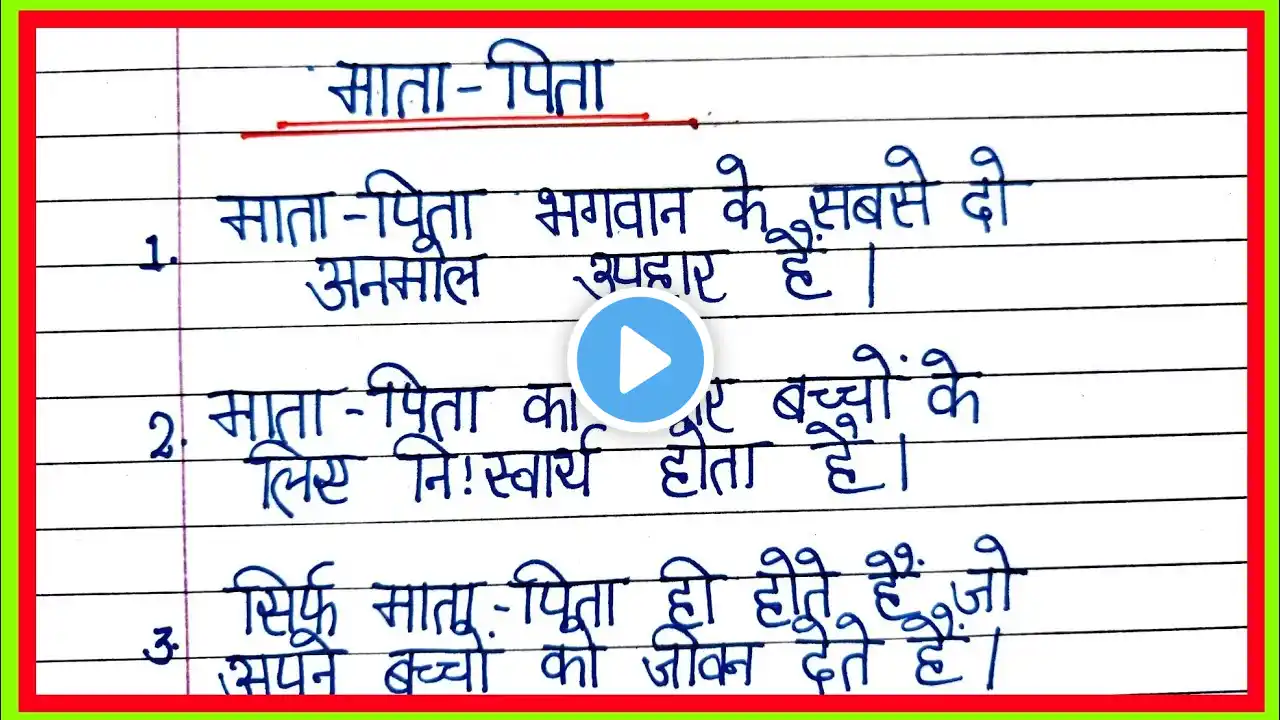 माता-पिता
1. माता-पिता भगवान के सबसे दो
अनमोल उपहार हैं।
2. माता-पिता का बच्चों के
लिए नि:स्वार्थ होता है।
3. सिर्फ माता-पिता ही होते हैं जो
अपने बच्चों को जीवन देते हैं।